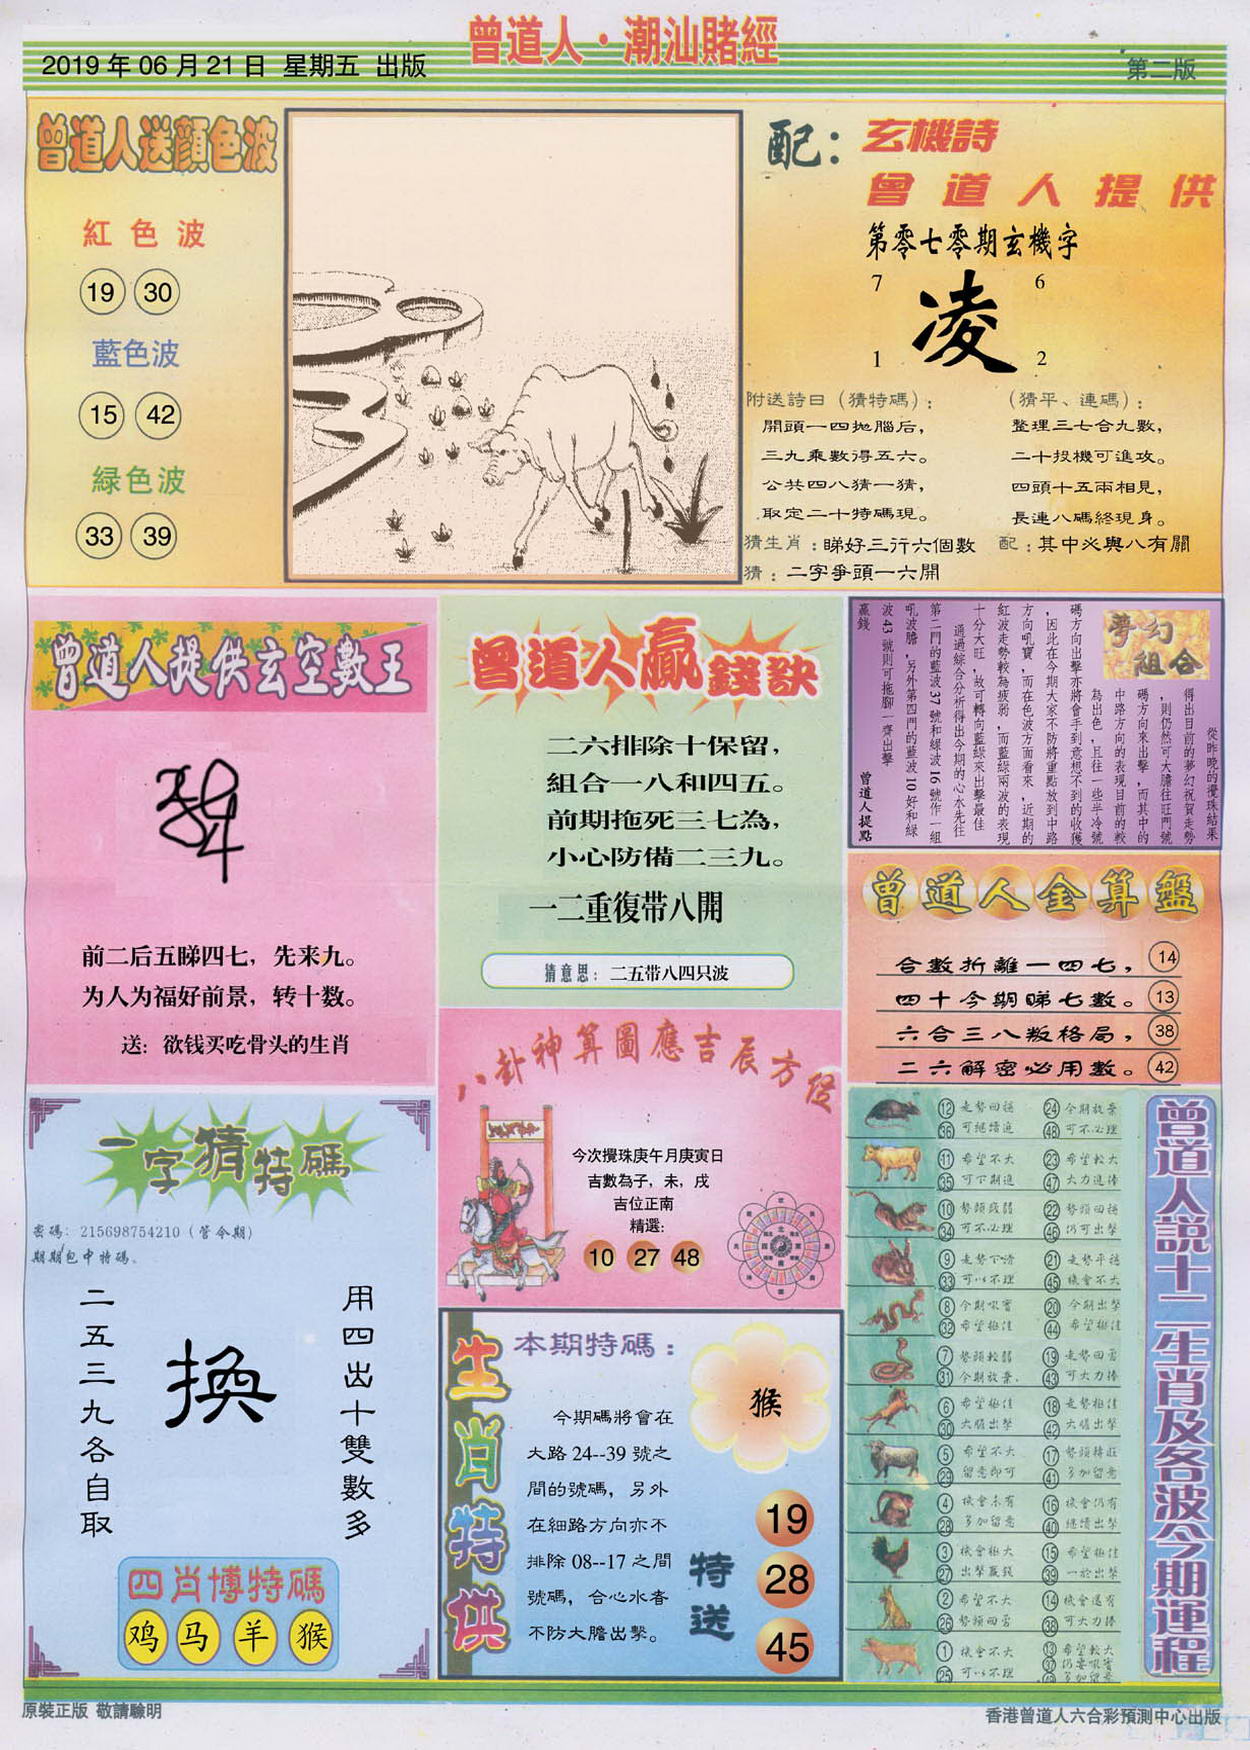 曾道人·潮汕賭經
2019 年 06 月 21 日 星期五 出版
第二版
曾道人送顏色波
紅色波
19 30
藍色波
15 42
緑色波
33 39
配：玄機詩
曾道人提供
第零七零期玄機字
7 6
凌
1 2
附送詩曰（猜特碼）：
開頭一四拋腦后，
三九乘數得五六。
公共四八猜一猜，
取定二十特碼現。
（猜平、連碼）：
整理三七合九數，
二十投機可進攻。
四頭十五兩相見，
長連八碼終現身。
猜生肖：睇好三行六個數
配：其中必與八有關
猜：二字爭頭一六開
曾道人提供玄空數王
前二后五睇四七，先来九。
为人为福好前景，转十数。
送：欲钱买吃骨头的生肖
曾道人贏錢訣
二六排除十保留，
組合一八和四五。
前期拖死三七為，
小心防備二三九。
一二重復帶八開
猜意思：二五带八四只波
夢幻
組合
從昨晚的攪珠結果
得出目前的夢幻祝賀走勢
，則仍然可大膽往旺門號
碼方向來出擊，而其中的
中路方向的表現目前的較
為出色，且往一些半冷號
碼方向出擊亦將會手到意想不到的收獲
，因此在今期大家不防將重點放到中路
方向吼寶，而在色波方面看來，近期的
紅波走勢較為疲弱，而藍緑兩波的表現
十分大旺，故可轉向藍緑來出擊最佳
通過綜合分析得出今期的心水先往
第二門的藍波 37 號和綠波 16 號作一組
吼波膽，另外第四門的藍波 10 好和綠
波 43 號則可拖腳一齊出擊
贏錢
曾道人提點
曾道人金算盤
合數折離一四七，14
四十今期睇七數。13
六合三八叛格局，38
二六解密必用數。42
八卦神算圖應吉辰方位
今次攪珠庚午月庚寅日
吉數為子，未，戌
吉位正南
精選：
10 27 48
一字猜特碼
密碼：215698754210（管今期）
期期包中特碼。
用四出十雙數多
換
二五三九各自取
四肖博特碼
鸡 马 羊 猴
生肖特供
本期特碼：
猴
今期碼將會在
大路 24--39 號之
間的號碼，另外
在細路方向亦不
排除 08--17 之間
號碼，合心水者
不防大膽出擊。
特送
19
28
45
曾道人説十二生肖及各波今期運程
12 走勢回穩 24 今期放棄
36 可繼續追 48 可不必理
11 希望不大 23 希望較大
35 可下期追 47 大力追捧
10 勢頭疲弱 22 勢頭回穩
34 可不必理 46 仍可出擊
9 走勢下滑 21 走勢平穩
33 可以不理 45 機會不大
8 今期吼寶 20 今期出擊
32 希望極佳 44 希望極佳
7 勢頭較弱 19 走勢回雲
31 今期放棄. 43 可大力捧
6 希望極佳 18 走勢極佳
30 大膽出擊 42 大膽出擊
5 希望不大 17 勢頭轉旺
29 留意即可 41 多加留意
4 機會未有 16 機會仍有
28 多加留意 40 繼續出擊
3 機會極大 15 希望極佳
27 出擊贏錢 39 一於出擊
2 希望不大 14 機會還有
26 勢頭回雲 38 可大力捧
1 機會不大 13 希望較大
25 可以不理 37 仍要吼寶
49 多加留意
原裝正版 敬請驗明
香港曾道人六合彩預測中心出版